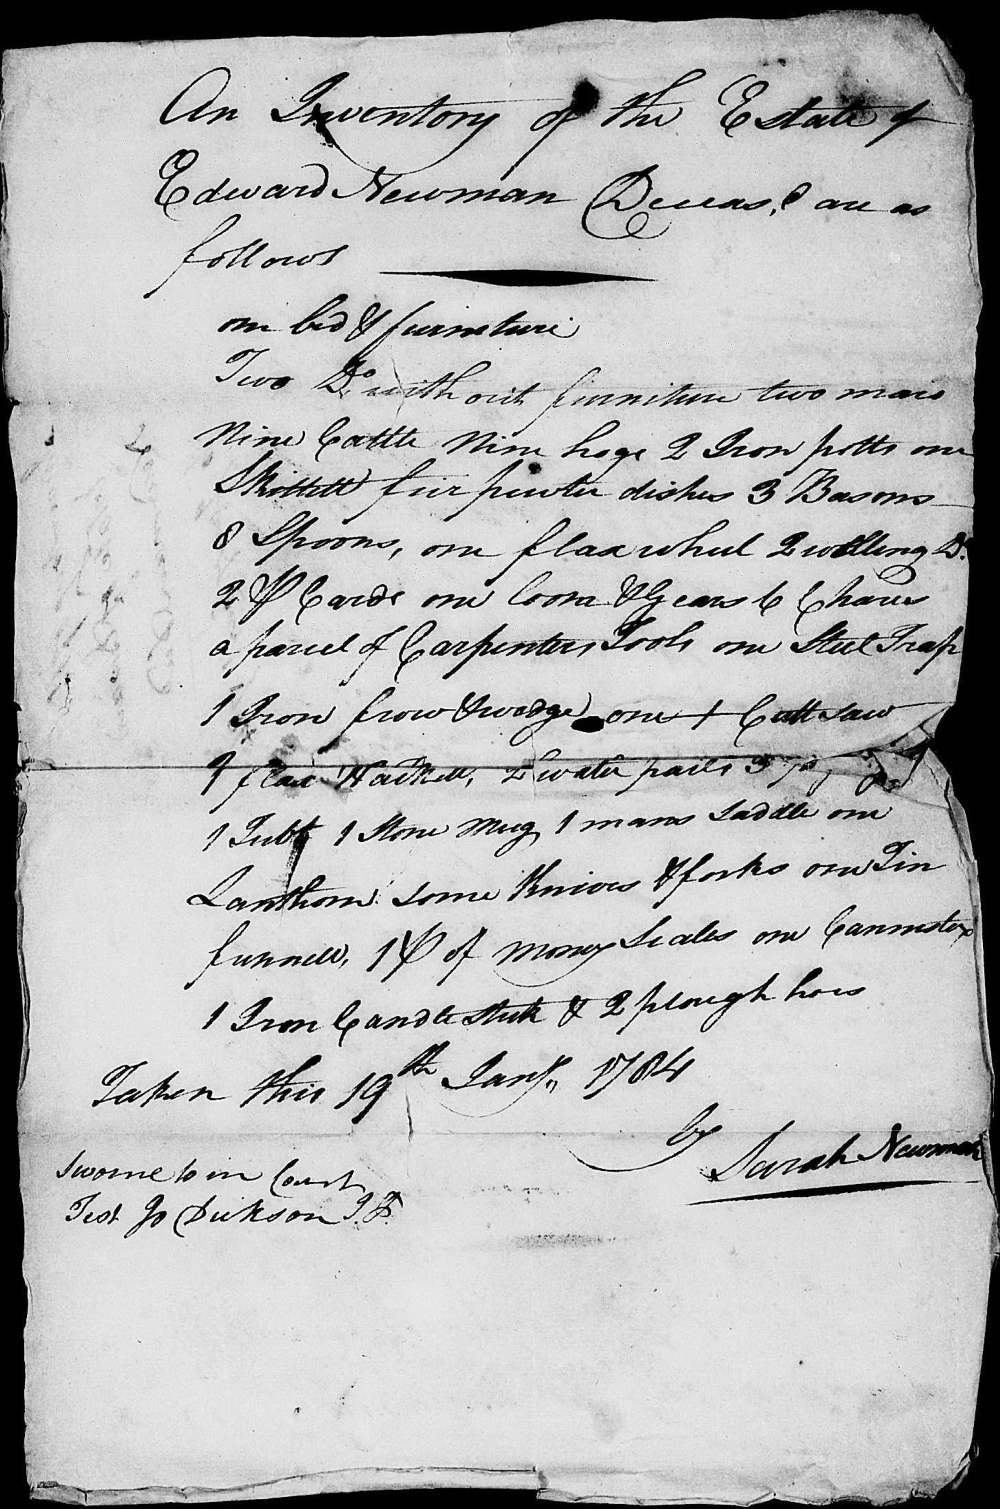 An Inventory of the Estate of
Edward Newman Deceas,d are as
follows
one bed & furniture
Two Do without furniture two mars
Nine Cattle Nine hogs 2 Iron potts one
Skillett five pewter dishes 3 Basons
8 Spoons, one flax wheel 2 wolling Do
2 P Cards one loom & Gears 6 Chares
a parcel of Carpenters Tools one Steel Trap
1 Iron frow & wedge one + Cutt saw
1 flax Hackell, 2 water pails 3
1 Tubb 1 Stone Mug, 1 mans Saddle one
Lanthorn some Knives & forks one Tin
funnell, 1 P of money Scales one Cannister
1 Iron Candle stick & 2 plough hoes
Taken this 19th Jany, 1784
by Sarah Newman
Sworne to in Court
Test Jo Dickson